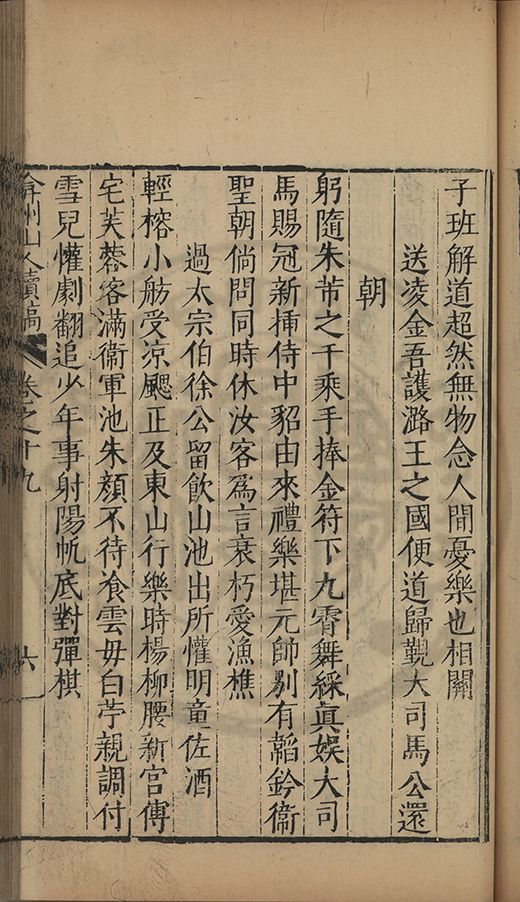 子班解道超然無物念人間憂樂也相關
送凌金吾護潞王之國便道歸覲大司馬公還
朝
躬隨朱芾之千乘手捧金符下九霄舞綵眞娛大司
馬賜冠新揷侍中貂由來禮樂堪元帥别有韜鈐衞
聖朝倘問同時休汝客爲言衰朽愛漁樵
過太宗伯徐公留飮山池出所懽明童佐酒
輕榕小舫受凉颸正及東山行樂時楊柳腰新宫傅
宅芙蓉客滿衞軍池朱顔不待飡雲母白苧親調付
雪兒懽劇翻追少年事射陽帆底對彈棋
弇州山人續稿 卷之十九 六